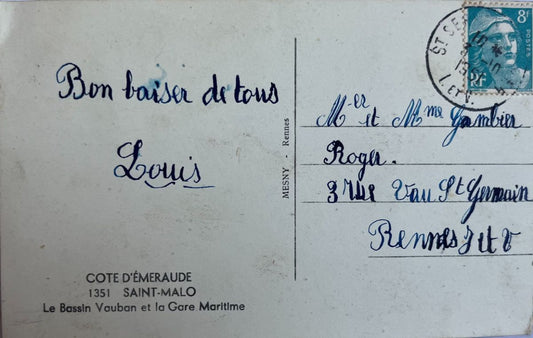 Bon baiser de tous
Louis
COTE D'ÉMERAUDE
1351 SAINT-MALO
Le Bassin Vauban et la Gare Maritime
MESNY - Rennes
8F
POSTES
ST SE
I. et V.
Mer et Mme Gambier
Roger.
3 rue Vau St Germain
Rennes I et V